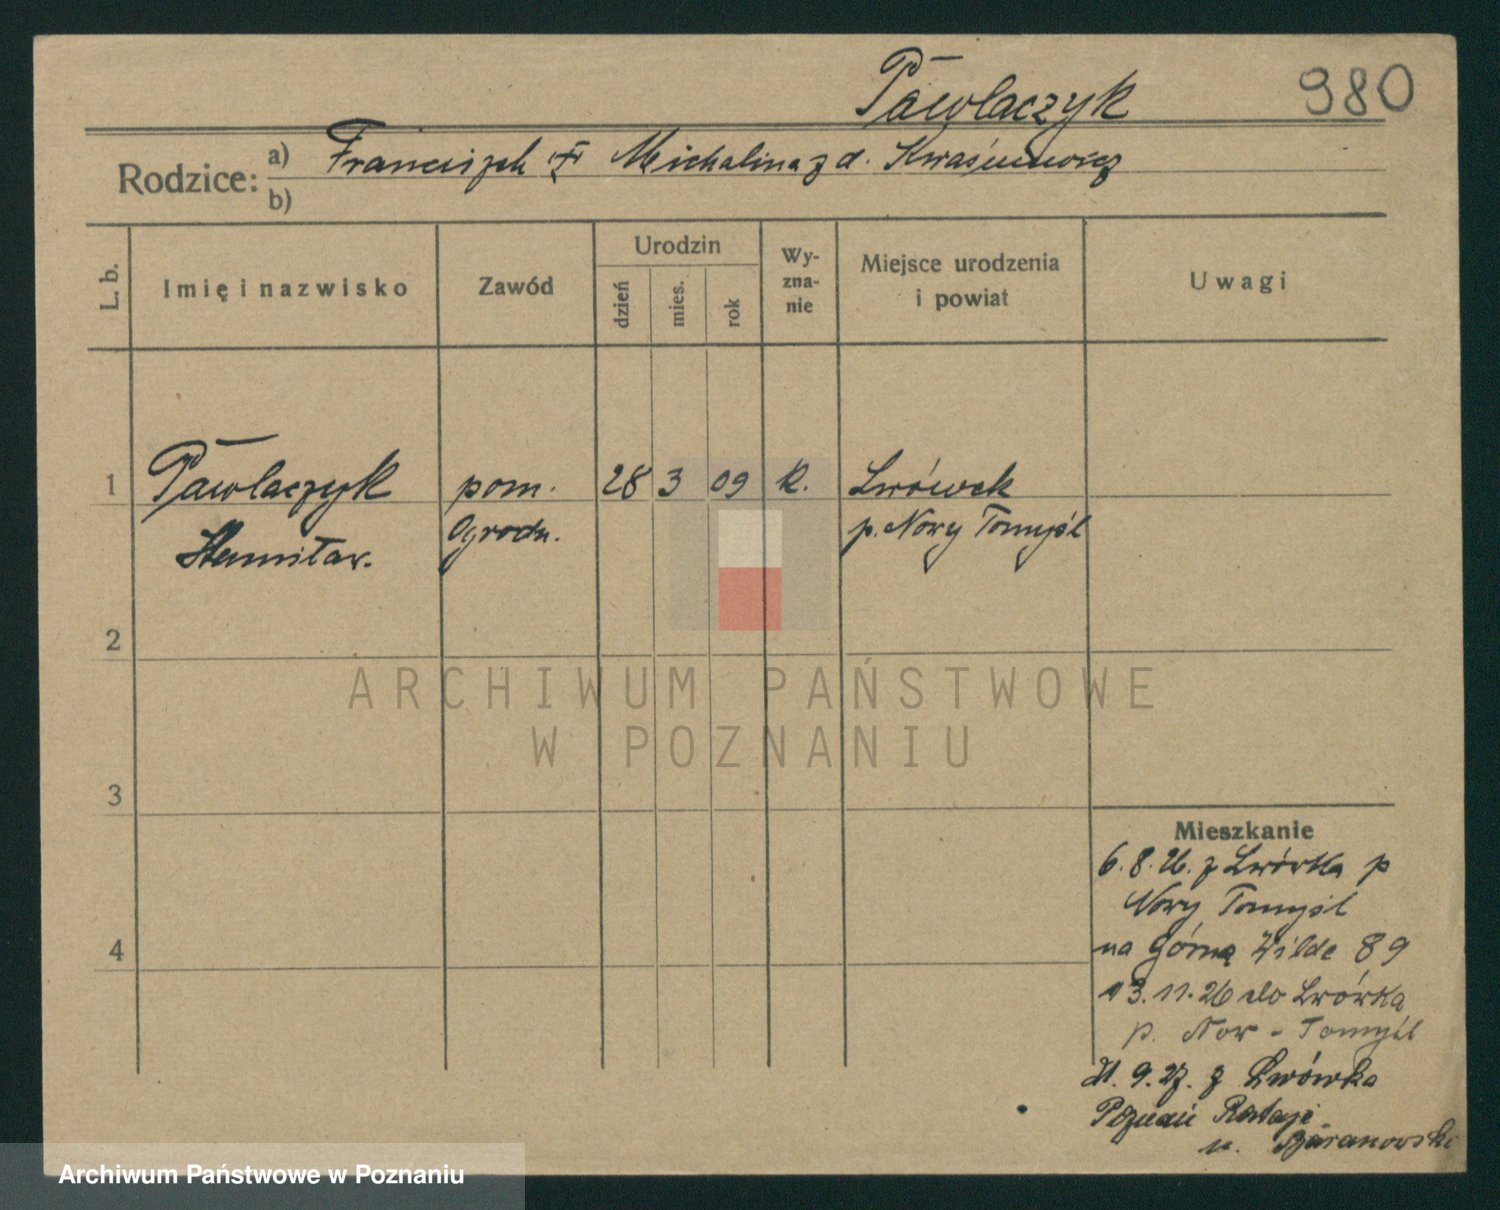 Pawlaczyk 980
Rodzice: a) Franciszek Michalina z d.
b)
L. b.
Imię i nazwisko
Zawód
Urodzin
dzień
mies.
rok
Wy-
zna-
nie
Miejsce urodzenia
i powiat
Uwagi
1 Pawlaczyk pom. 28 3 09 k. Lwówek
Stanisław. Ogrodn. p. Nowy Tomyśl
2
ARCHIWUM PAŃSTWOWE
W POZNANIU
3
Mieszkanie
6.8.26. z Lwówka p
Nowy Tomyśl
na Górną Wilde 89
4
13.11.26 do Lwówka
p. Now - Tomyśl
21.9.27. z Lwówka
Poznań Rataje
u. Baranowski
Archiwum Państwowe w Poznaniu